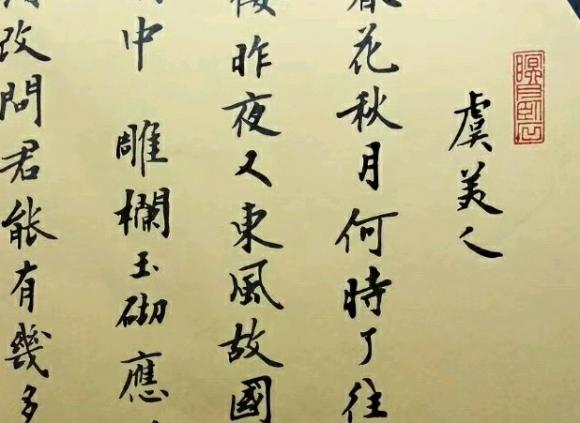 虞美人
春花秋月何時了往
昨夜又東風故國
中 雕欄玉砌應
改問君能有幾多